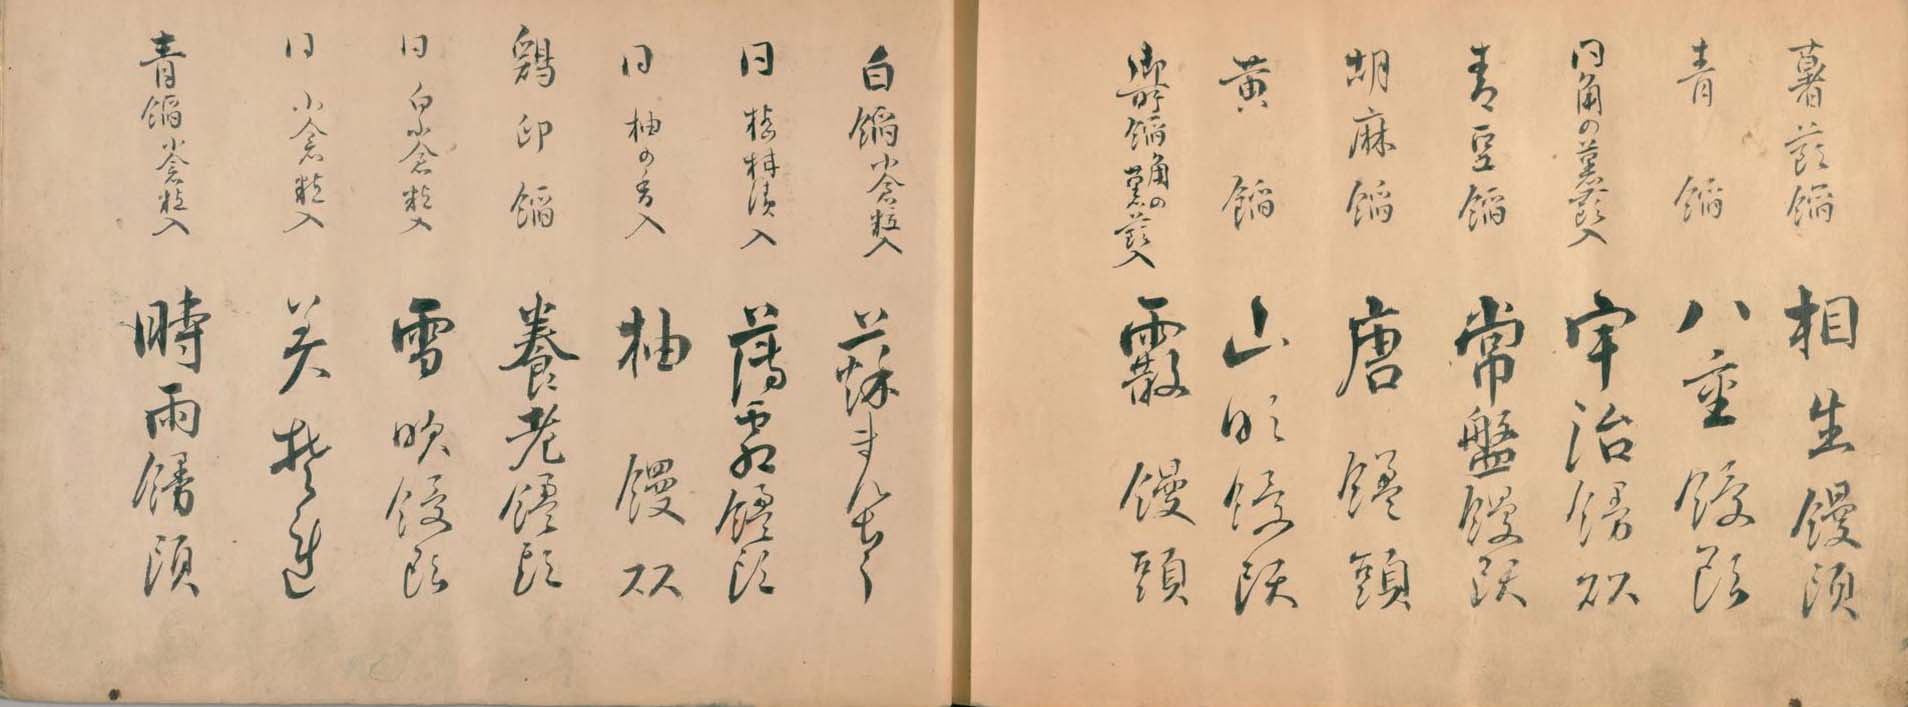 薯蕷餡 相生饅頭
青餡 八重饅頭
同角の薯蕷入 宇治饅頭
青豆餡 常盤饅頭
胡麻餡 唐饅頭
黄餡 山吹饅頭
御所餡角の薯蕷入 霰饅頭
白餡小倉粒入 まんぢう
同 漬入 薄饅頭
同 柚の香入 柚饅頭
鶏卵餡 養老饅頭
同 白小倉粒入 雪吹饅頭
同 小倉粒入
青餡小倉粒入 時雨饅頭